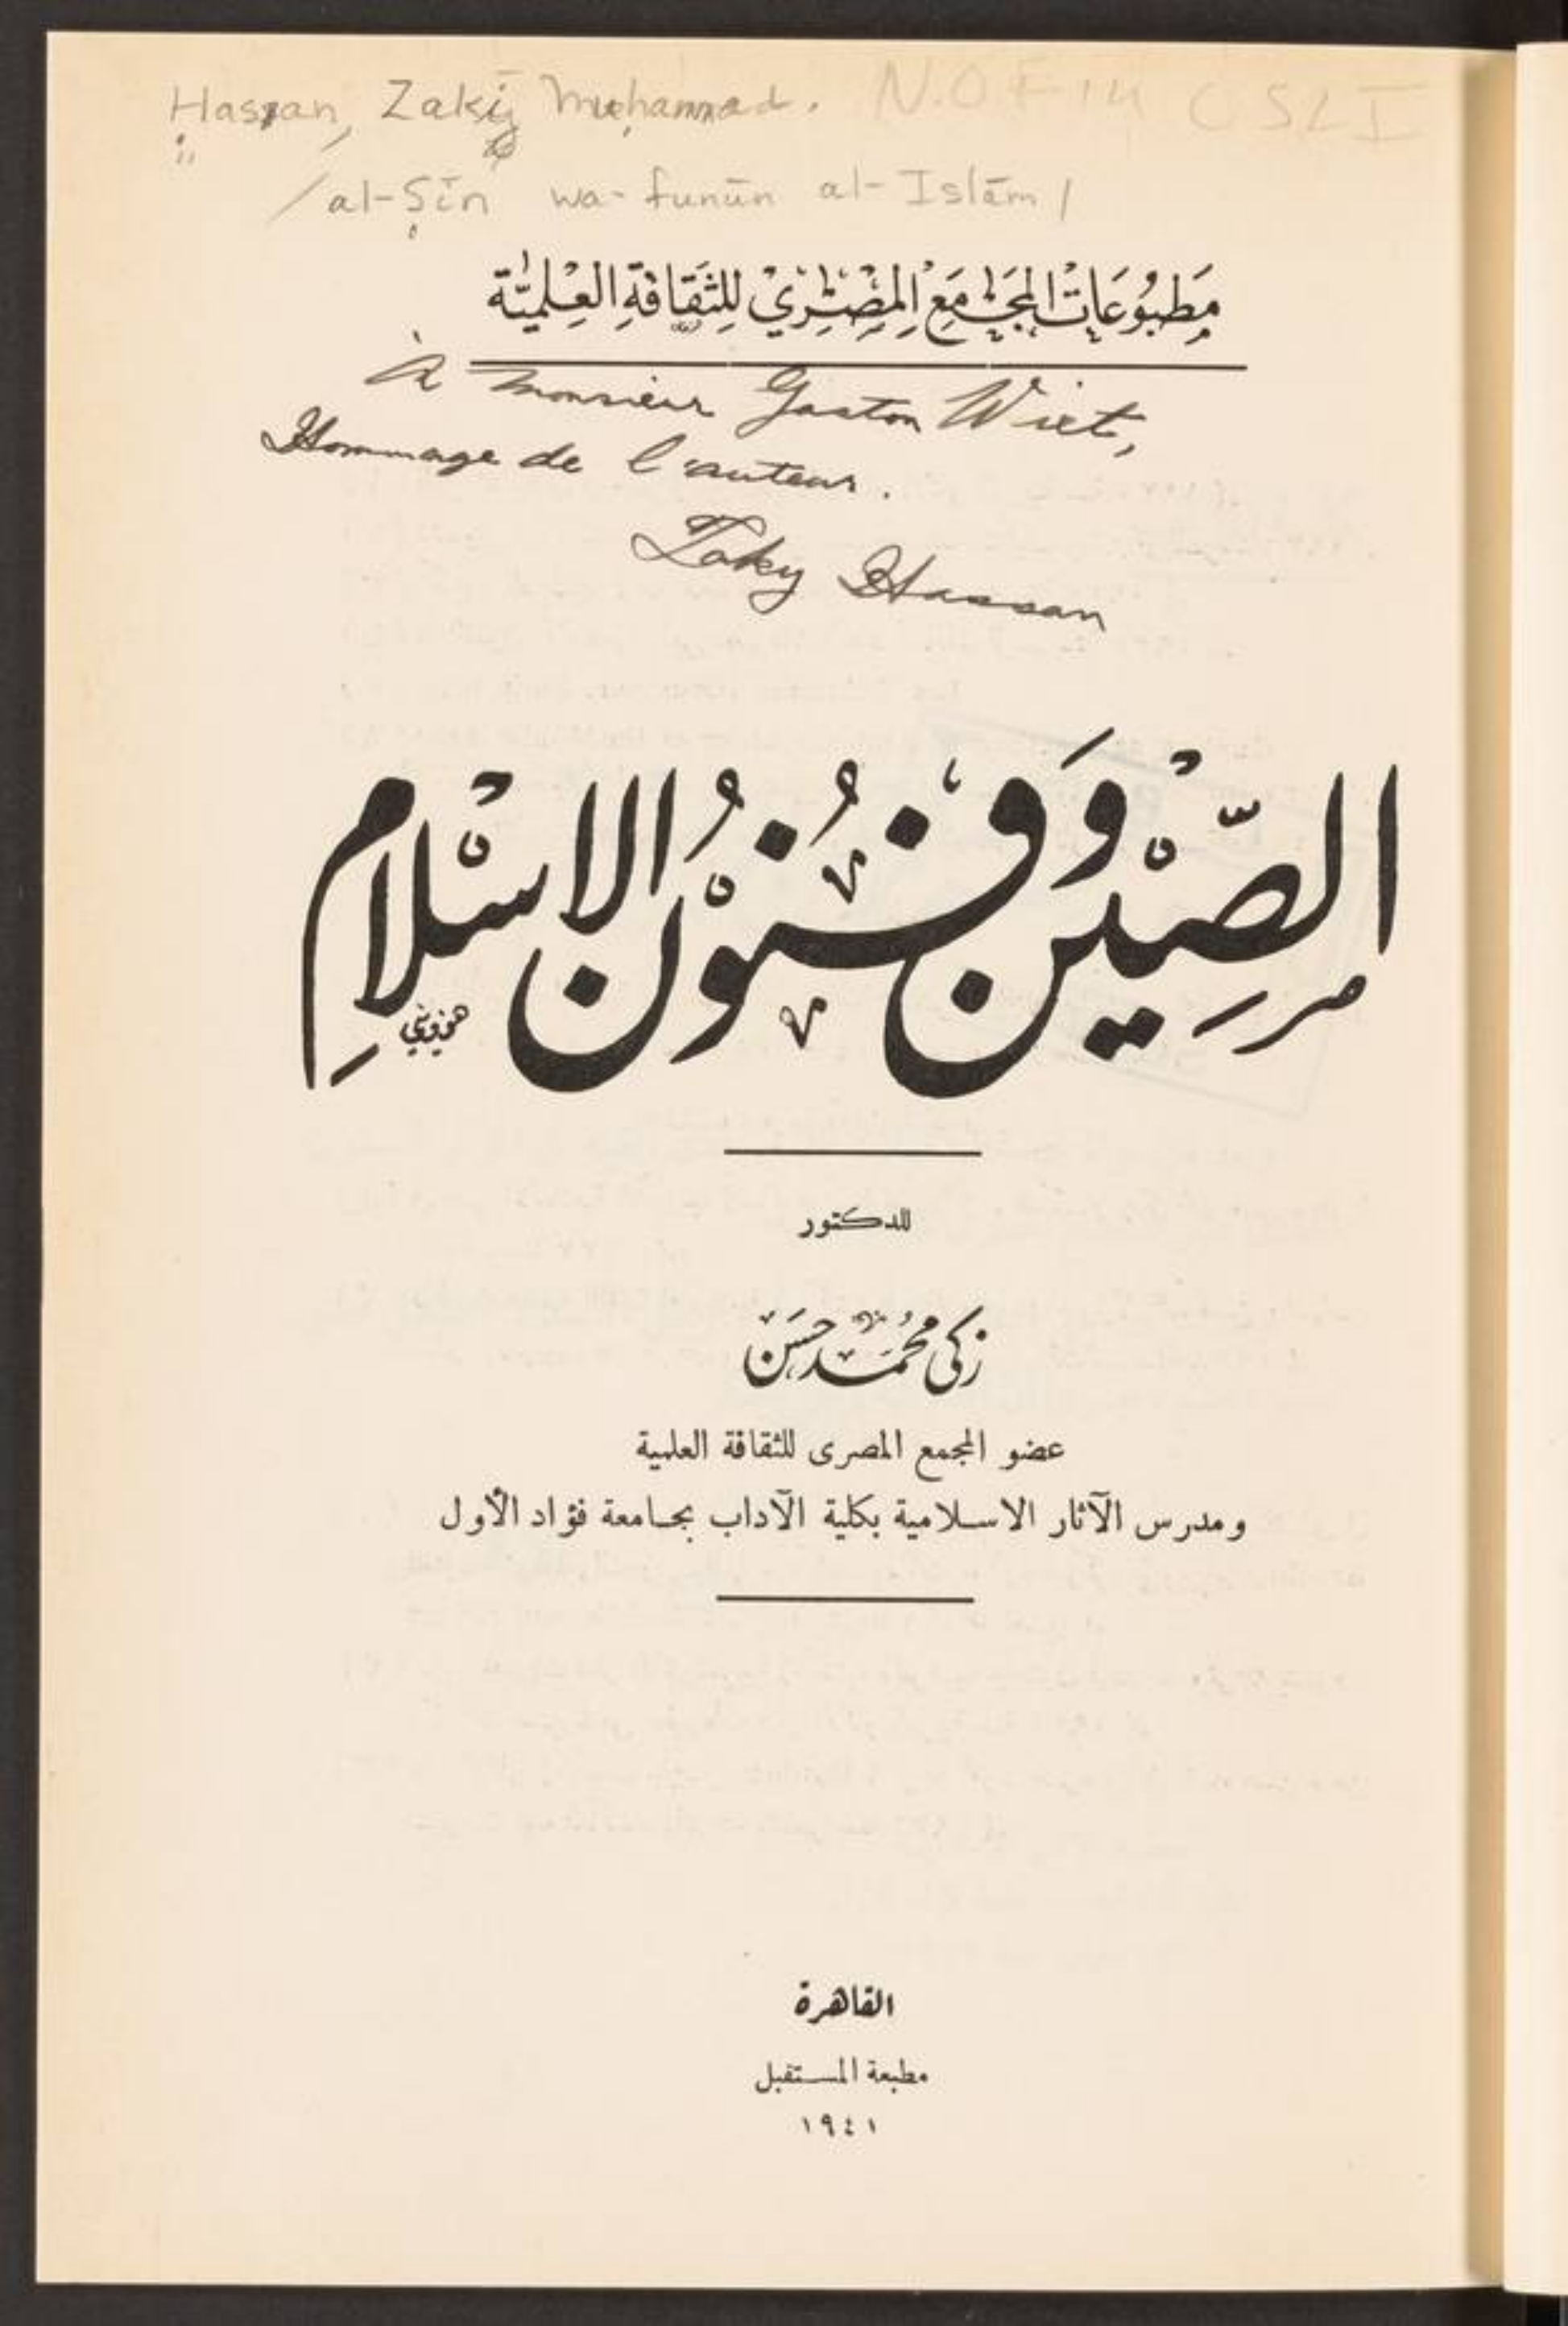 Hassan, Zakī Muḥammad. N.O F 14 OSL I
/al-Ṣīn wa-funūn al-Islām/
مَطبُوعَاتُ المجَمَعِ المِصْرِيْ لِلثَقَافَةِ العِلْمِيَّة
à Monsieur Gaston Wiet,
Hommage de l'auteur.
Zaky Hassan
الصّيْن وَفُنُوْن الاِسْلام
للدكتور
زكى محُمَّد حسَن
عضو المجمع المصرى للثقافة العلمية
ومدرس الآثار الاسلامية بكلية الآداب بجامعة فؤاد الأول
القاهرة
مطبعة المستقبل
١٩٤١